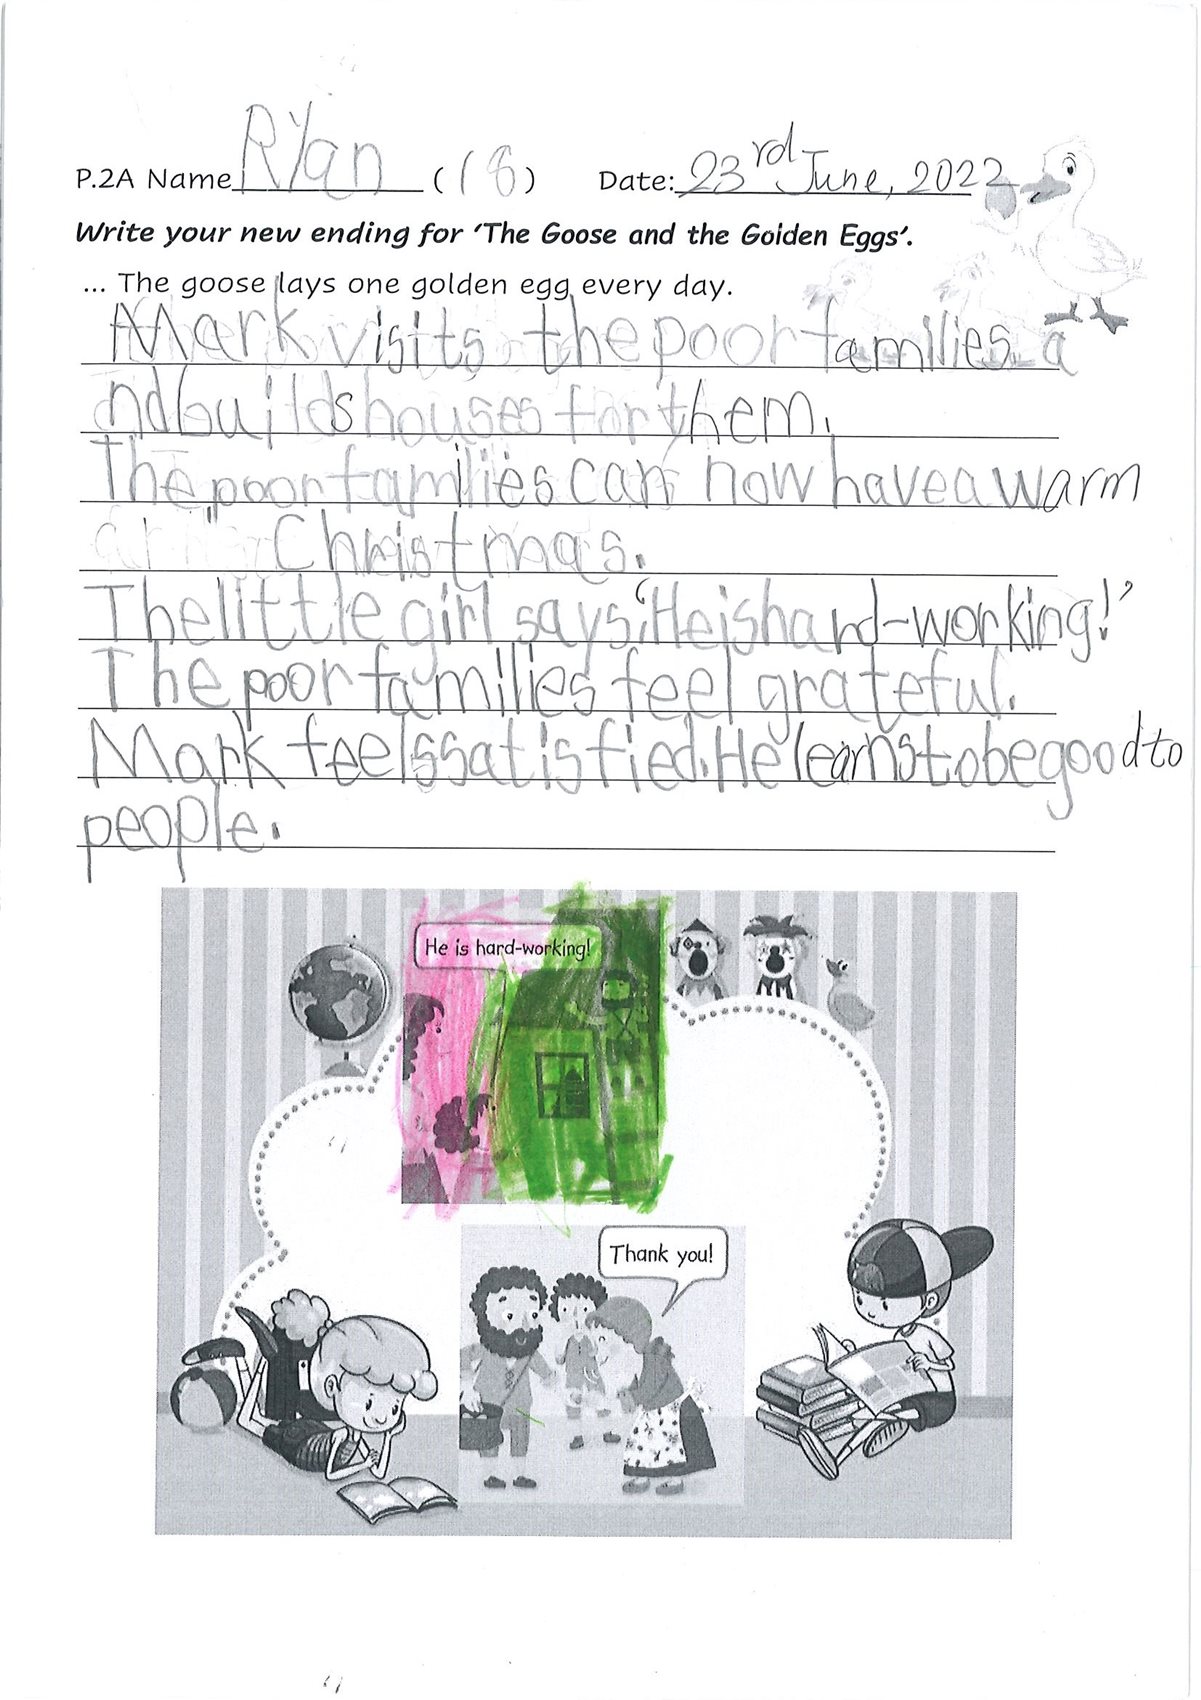 P.2A Name Ryan (18) Date: 23rd June, 2022
Write your new ending for ‘The Goose and the Golden Eggs’.
... The goose lays one golden egg every day.
Mark visits the poor families a
nd builds houses for them.
The poor families can now have a warm
Christmas.
The little girl says, ‘He is hard-working!’
The poor families feel grateful.
Mark feels satisfied. He learns to be good to
people.
He is hard-working!
Thank you!